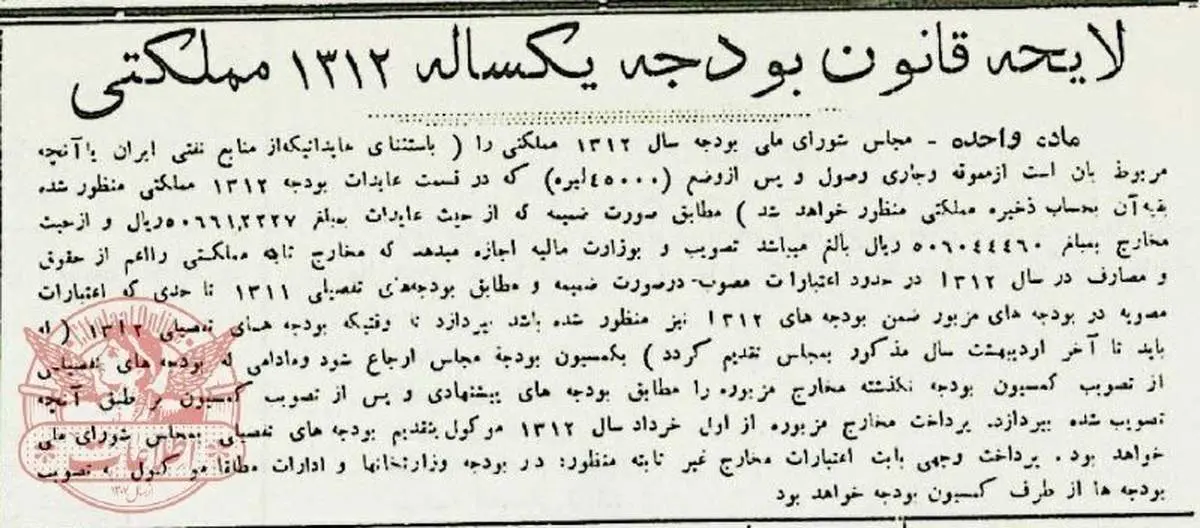 لایحه قانون بودجه یکساله ۱۳۱۲ مملکتی
ماده واحده - مجلس شورای ملی بودجه سال ۱۳۱۲ مملکتی را ( باستثنای عایداتیکه از منابع نفتی ایران یا آنچه
مربوط بان است ازمعوقه وجاری وصول و پس ازوضع (۴۵۰۰۰ لیره) که در قسمت عایدات بودجه ۱۳۱۲ مملکتی منظور شده
بقیه آن بحساب ذخیره مملکتی منظور خواهد شد ) مطابق صورت ضمیمه که از حیث عایدات بمبلغ ریال و ازحیث
مخارج بمبلغ ۵۰۶۰۴۴۴۶۰ ریال بالغ میباشد تصویب و بوزارت مالیه اجازه میدهد که مخارج ثابته مملکتی رااعم از حقوق
و مصارف در سال ۱۳۱۲ در حدود اعتبارات مصوب درصورت ضمیمه و مطابق بودجه‌های تفصیلی ۱۳۱۱ تا حدی که اعتبارات
مصوبه در بودجه های مزبور ضمن بودجه های ۱۳۱۲ نیز منظور شده باشد بپردازد تا وقتیکه بودجه همای تفصیلی ۱۳۱۲ ( که
باید تا آخر اردیبهشت سال مذکور بمجلس تقدیم گردد ) بکمسیون بودجهٔ مجلس ارجاع شود ومادامی که بودجه های تفصیلی
از تصویب کمسیون بودجه نگذشته مخارج مزبوره را مطابق بودجه های پیشنهادی و پس از تصویب کمسیون بر طبق آنچه
تصویب شده بپردازد. پرداخت مخارج مزبوره از اول خرداد سال ۱۳۱۲ موکول بتقدیم بودجه های تفصیلی بمجلس شورای ملی
خواهد بود . پرداخت وجهی بابت اعتبارات مخارج غیر ثابته منظور: در بودجه وزارتخانها و ادارات مطلقا موکول به تصویب
بودجه ها از طرف کمسیون بودجه خواهد بود
Ettelaat Online
اطلاعات
از سال ۱۳۰۷